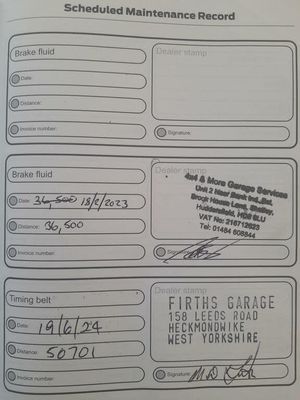 Scheduled Maintenance Record
Brake fluid
Dealer stamp
Date:
Distance:
Invoice number:
Signature:
Brake fluid
Dealer stamp
Date: 36,500 18/2/2023
4x4 & More Garage Services
Unit 2 Near Bank Ind. Est.
Brook House Lane, Shelley,
Huddersfield, HD8 8LU
VAT No: 218712623
Tel: 01484 608844
Distance: 36,500
Invoice number:
Timing belt
Dealer stamp
FIRTHS GARAGE
158 LEEDS ROAD
HECKMONDWIKE
WEST YORKSHIRE
Date: 19/6/24
Distance: 50701
Invoice number:
Signature: